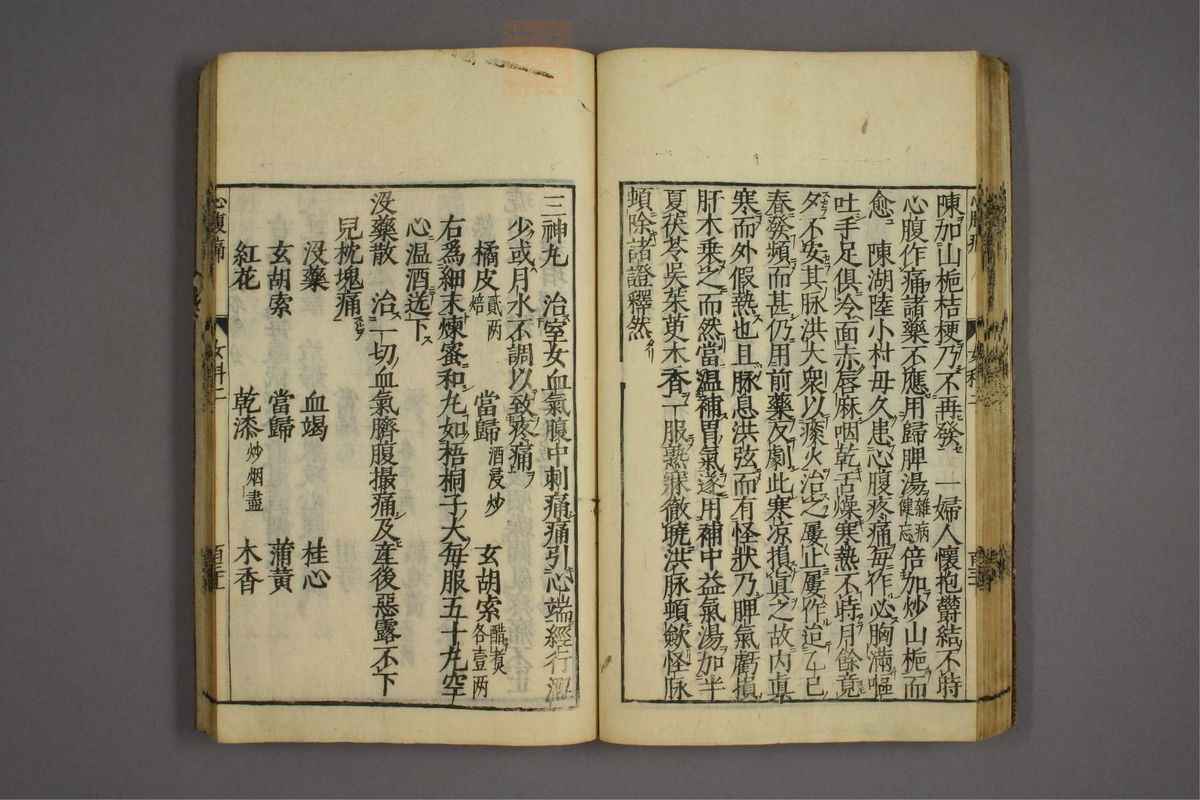 陳加山梔桔梗乃不再發 一婦人懷抱欝結不時
心腹作痛諸藥不應用歸脾湯雜病健忘倍加炒山梔而
愈 陳湖陸小村母久患心腹疼痛毎作必胸滿嘔
吐手足俱冷面赤唇麻咽乾舌燥寒熱不時月餘竟
夕不安其脉洪大衆以痰火治之屢止屢作迨乙巳
春發頻而甚仍用前藥反劇此寒凉損眞之故内眞
寒而外假熱也且脉息洪弦而有怪狀乃脾氣虧損
肝木乘之而然當温補胃氣遂用補中益氣湯加半
夏茯苓吳茱萸木香一服熟寐徹曉洪脉頓歛怪脉
頓除諸證釋然
三神丸 治室女血氣腹中刺痛痛引心端經行澀
少或月水不調以致疼痛
橘皮貳两焙 當歸酒浸炒 玄胡索醋煑各壹两
右爲細末煉蜜和丸如梧桐子大毎服五十丸空
心温酒送下
没藥散 治一切血氣臍腹撮痛及産後惡露不下
兒枕塊痛
没藥 血竭 桂心
玄胡索 當歸 蒲黄
紅花 乾漆炒烟盡 木香
心腹痛 女科二